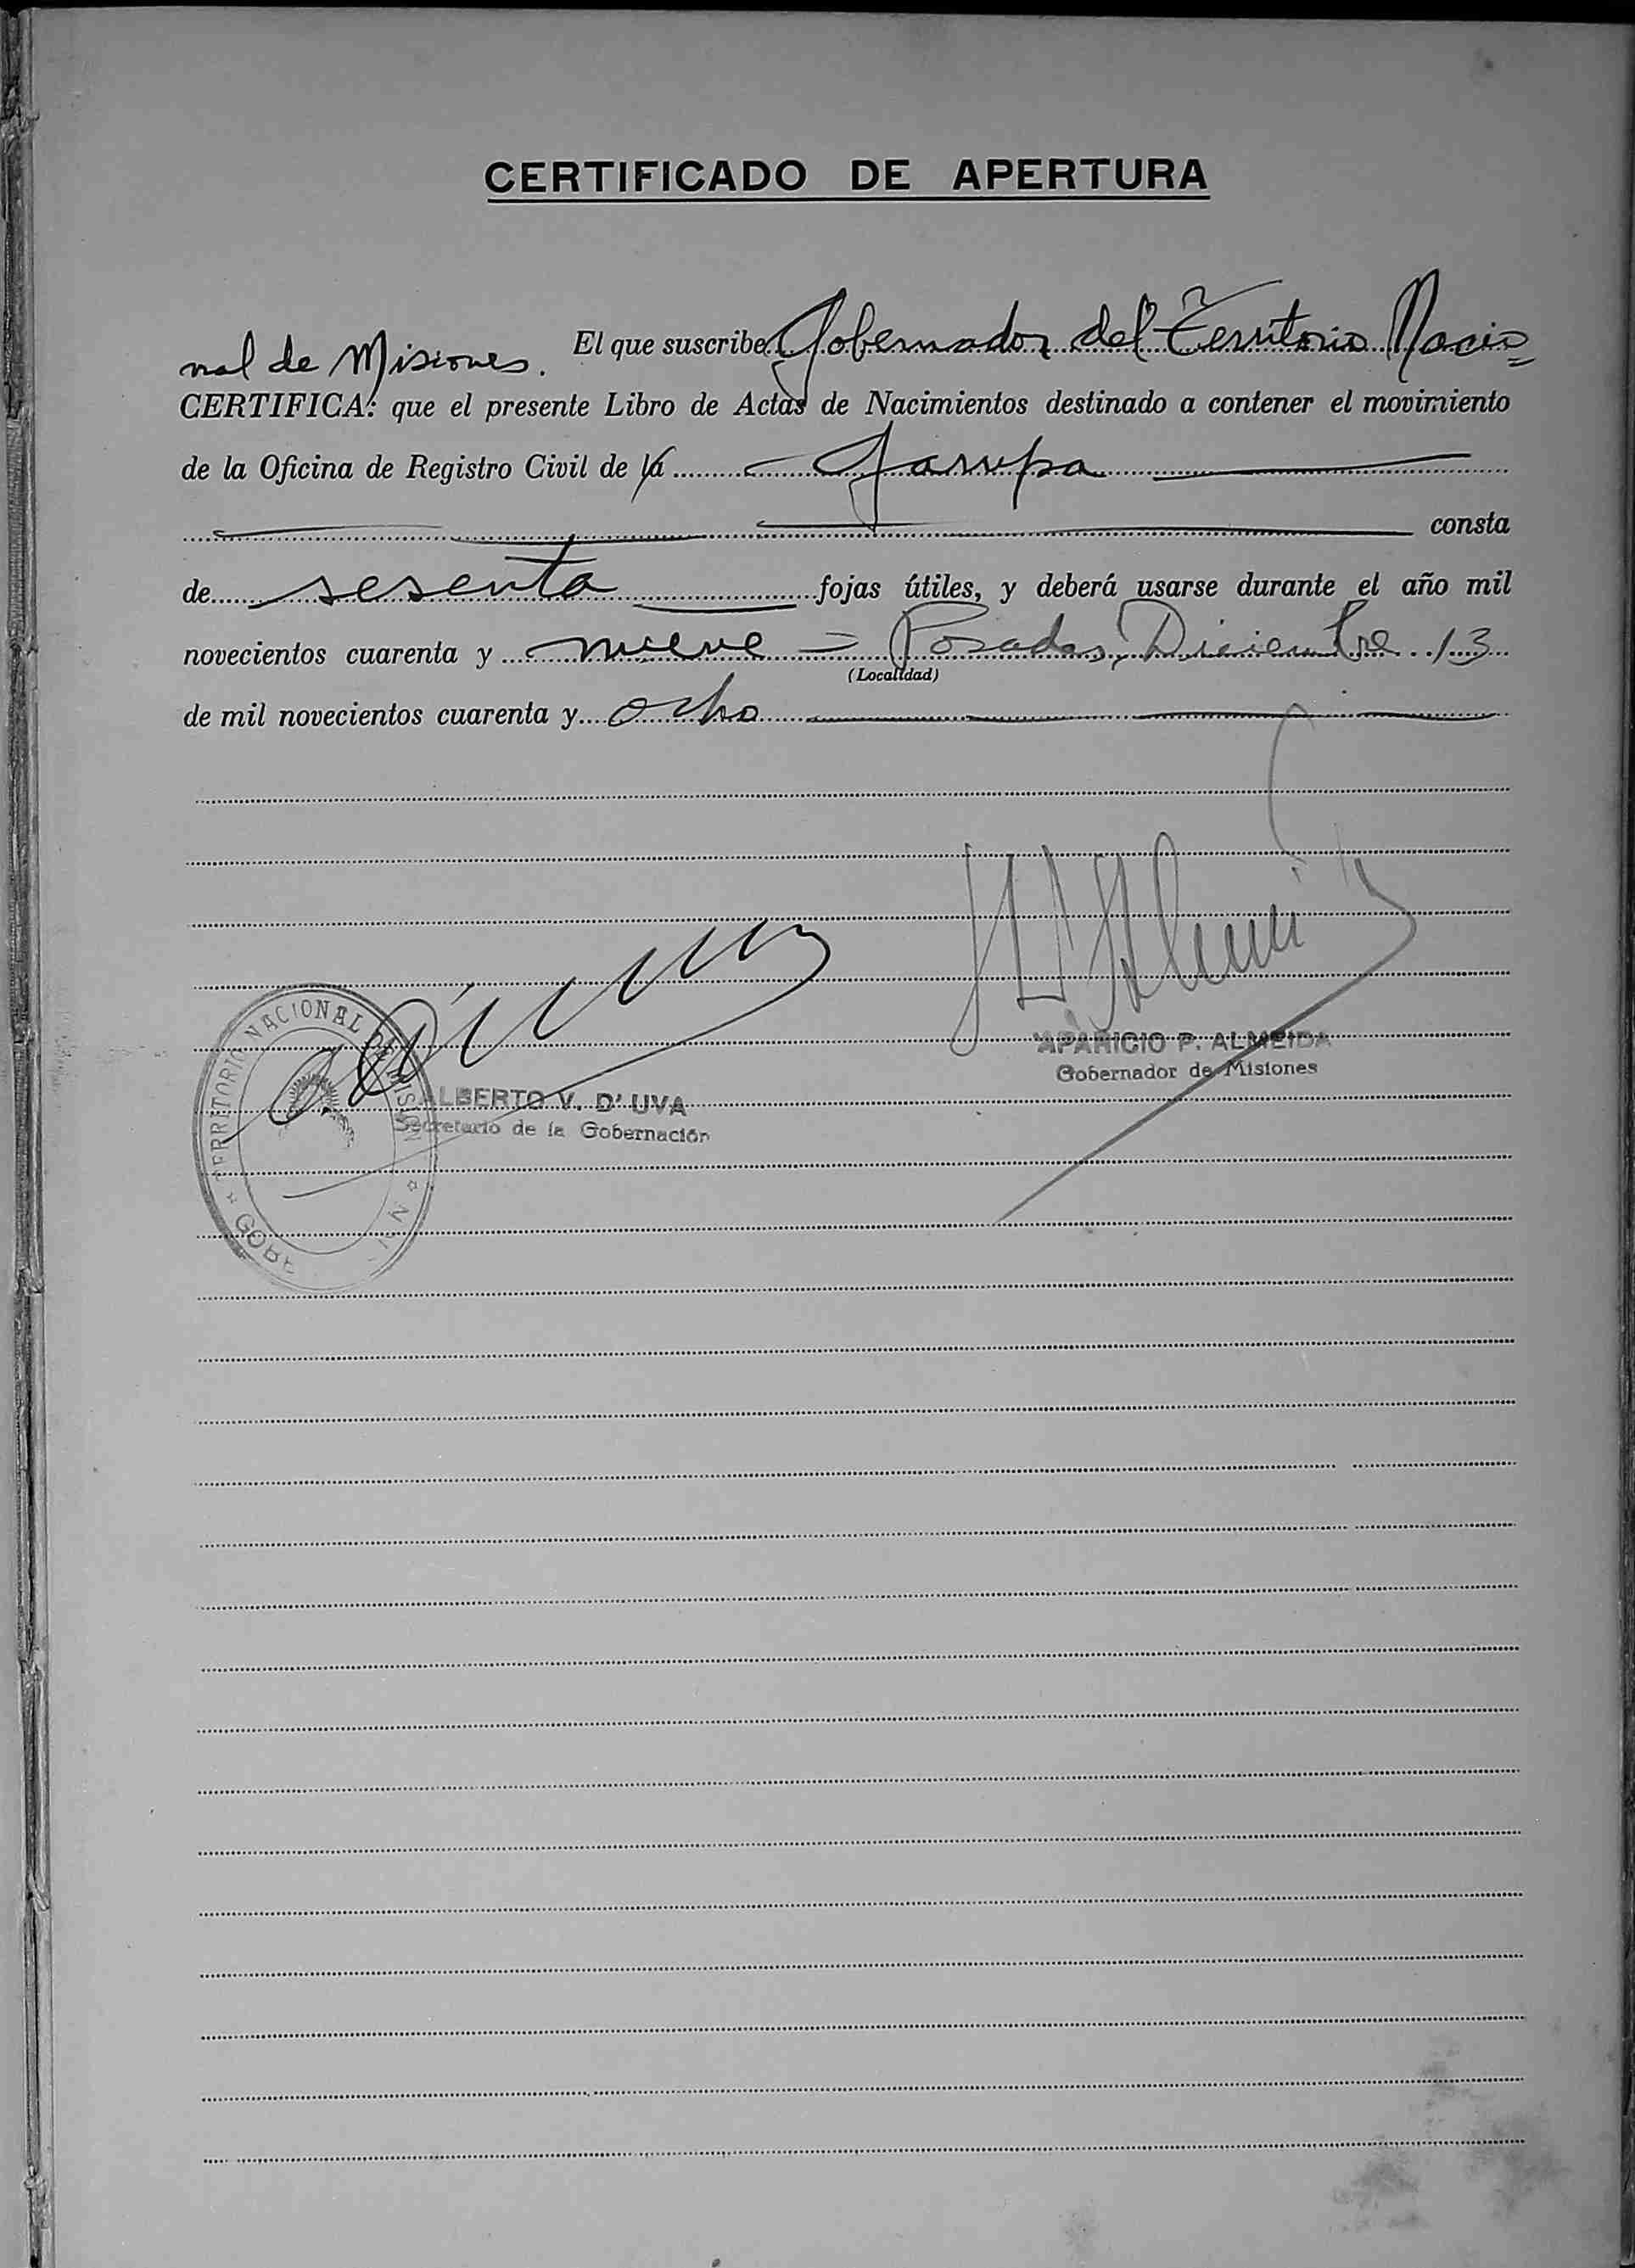 CERTIFICADO DE APERTURA
El que suscribe Gobernador del Territorio Nacio=
nal de Misiones.
CERTIFICA: que el presente Libro de Actas de Nacimientos destinado a contener el movimiento
de la Oficina de Registro Civil de la Garupa
consta
de sesenta fojas útiles, y deberá usarse durante el año mil
novecientos cuarenta y nueve = Posadas, Diciembre 13
(Localidad)
de mil novecientos cuarenta y ocho
APARICIO P. ALMEIDA
Gobernador de Misiones
ALBERTO V. D' UVA
Secretario de la Gobernación
TERRITORIO NACIONAL DE MISION
GOBE